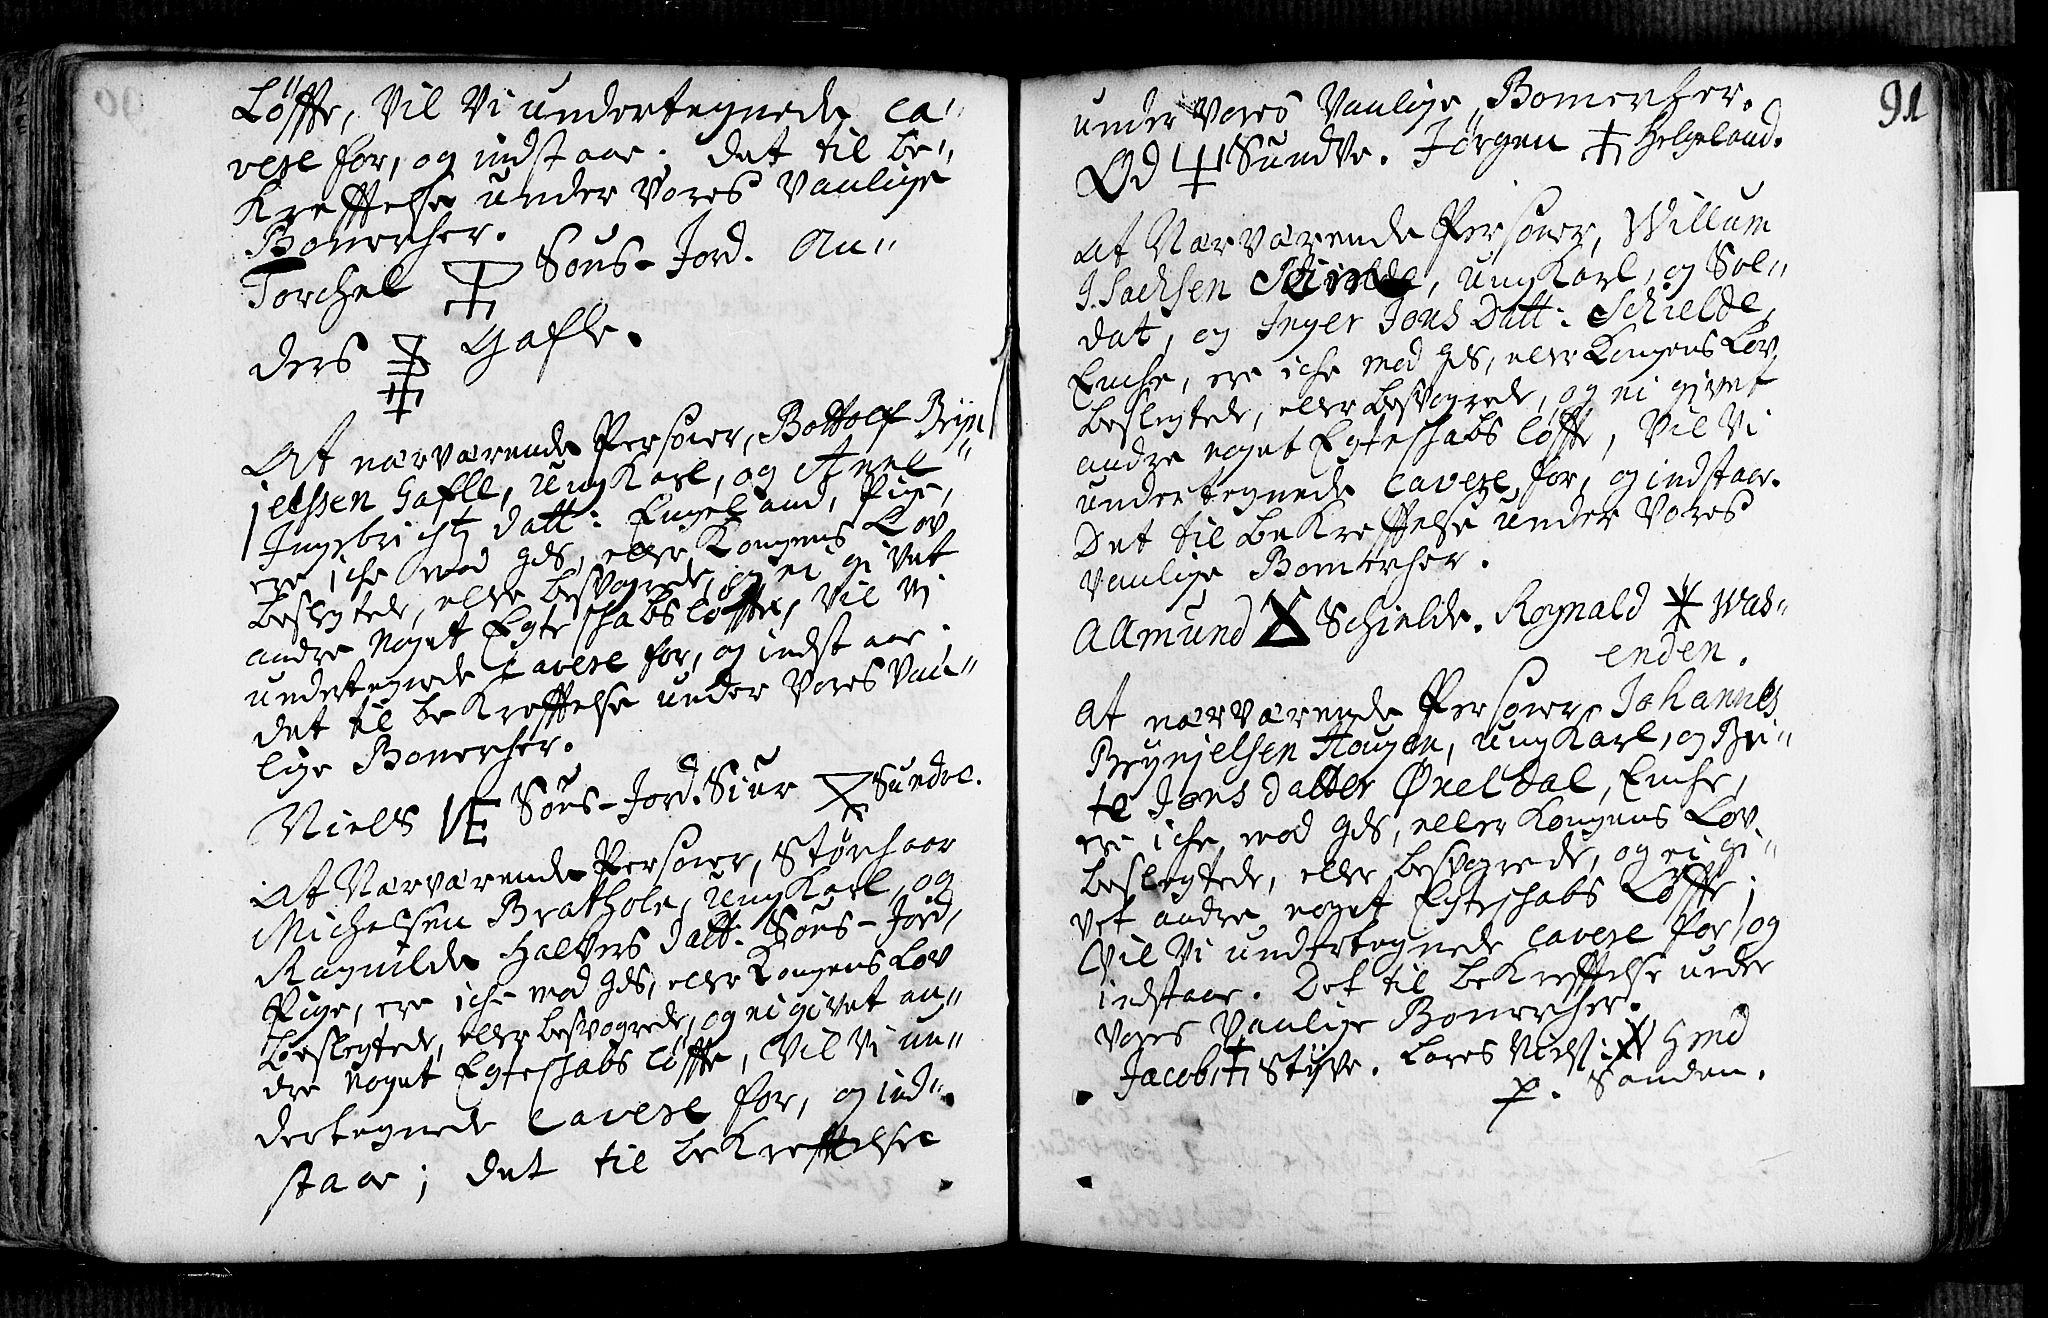 Løffte, Vil Vi undertegnede ca¨
vere for, og indstaae. Det til be¨
Kreffelse under Vores Vanlige
Bomercher.
Torchel Søns-Jord. An¨
ders Gafle.
At nærværende Personer, Bottolf Bryn
jelssen Gafle, UngKarl, og Anne
Ingebrichtz Datt: Engeland, Pige,
ere iche mod Gds, eller Kongens Lov
beslegtede, eller besvogrede, og ei givet
andre noget Egteschabs løffte, Vil Vi
undertegnede Cavere for, og indstaae.
det til beKreffelse under Vores Van¨
lige Bomercher.
Niels NE Søns-Jord. Siur Sundve.
At Nærværende Personer, Størchaar
Michelsen Brathole, UngKarl, og
Ragnilde Halvers Datt: Søns-Jord,
Pige, ere iche mod Gds, eller Kongens Lov
beslegtede, eller besvogrede, og ei givet an¨
dre noget Egteschabs løffte, Vil Vi un¨
dertegnede Cavere for, og ind¨
staae; det til beKreffelse
91
under Vores Vanlige Bomercher.
Od Sundve. Jørgen Helgeland.
At Nærværende Personer, Willum
J.Sachsen, UngKarl, og Sol¨
dat, og Inger Jons Datt: Schielde,
Enche, ere iche mod Gds, eller Kongens Lov,
beslegtede, eller besvogrede, og ei givet
andre noget Egteschabs løffte, Vil Vi
undertegnede Cavere for, og indstaae.
Det til beKreffelse under Vores
Vanlige Bomercher.
AAmund Schielde. Rognald Was¨
enden.
At nærværende Personer Johannes
Brynjelsen Hougen, UngKarl, og Bri¨
te Jons datter Øxeldal, Enche,
ere iche mod Gds, eller Kongens Lov,
beslegtede, eller besvogrede, og ei gi¨
vet andre noget Egteschabs Løffte;
Vil Vi undertegnede Cavere for, og
indstaae. Det til beKreffelse under
Vores Vanlige Bomercher.
Jacob Styve. Lares Hmd
p. Sanden.